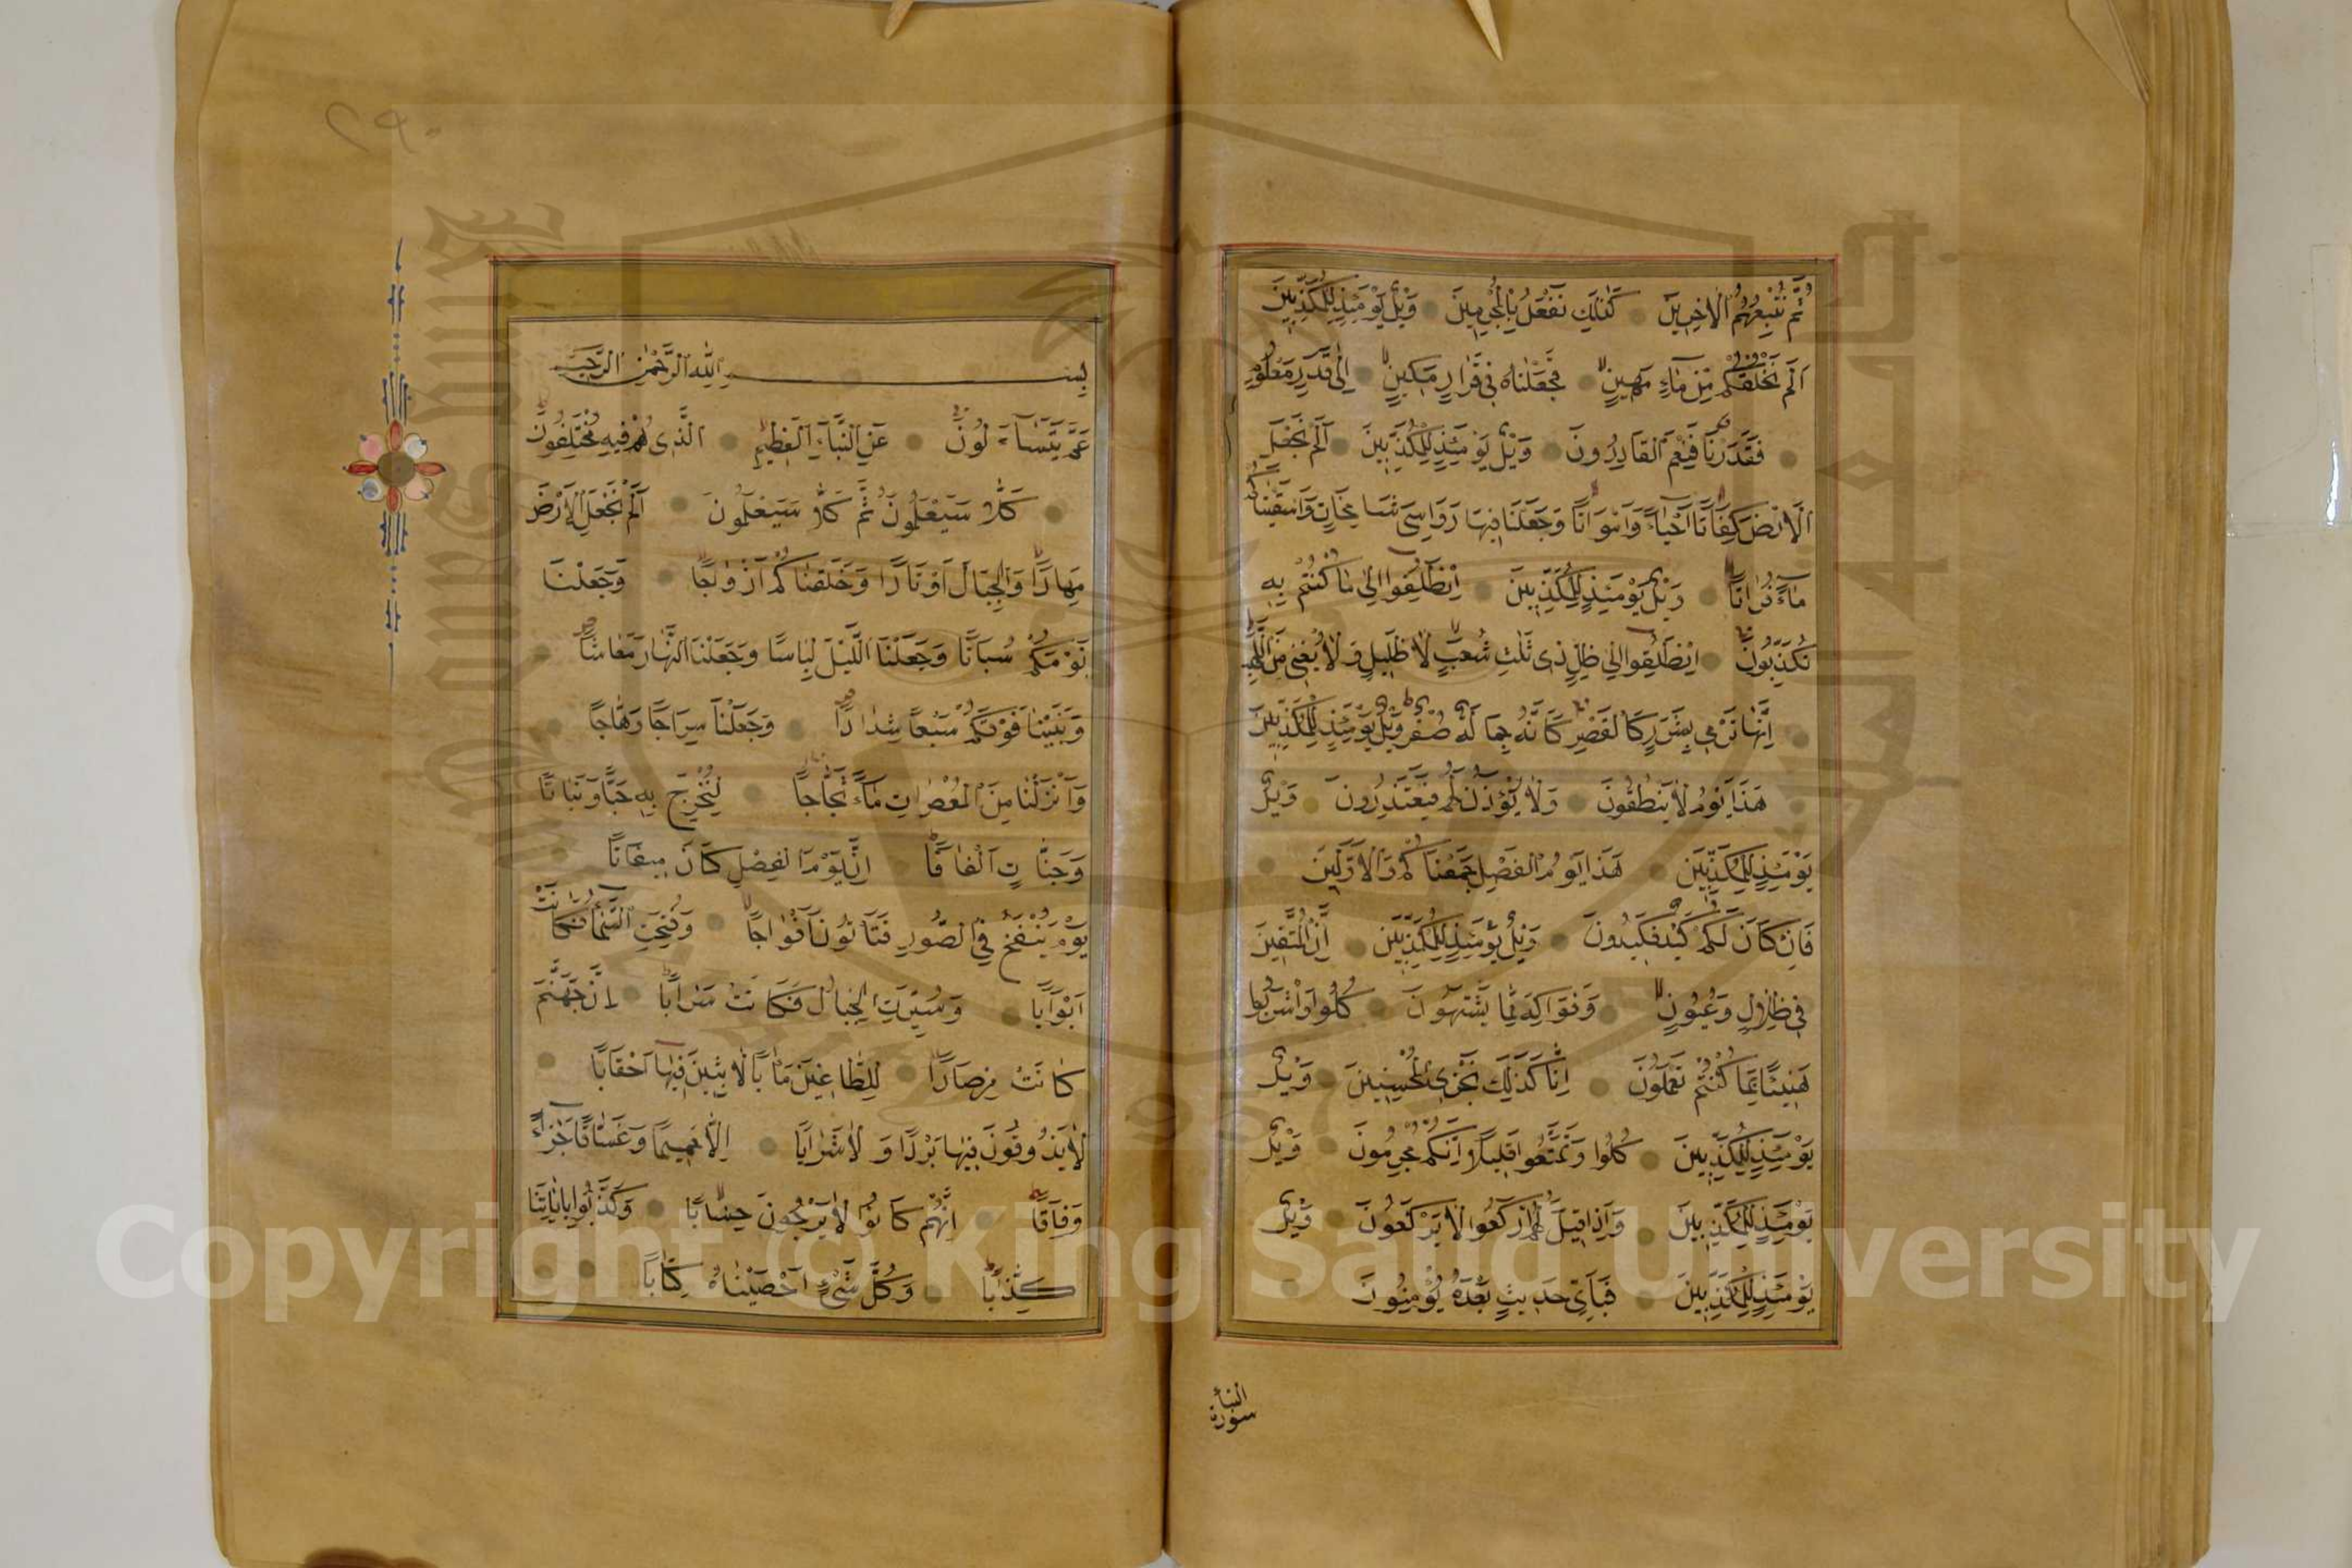 ثُمَّ نُتْبِعُهُمُ الْاٰخِرِينَ كَذٰلِكَ نَفْعَلُ بِالْمُجْرِمِينَ وَيْلٌ يَوْمَئِذٍ لِلْمُكَذِّبِينَ
اَلَمْ نَخْلُقْكُمْ مِنْ مَاءٍ مَهِينٍ فَجَعَلْنَاهُ فِي قَرَارٍ مَكِينٍ اِلٰى قَدَرٍ مَعْلُومٍ
فَقَدَرْنَا فَنِعْمَ الْقَادِرُونَ وَيْلٌ يَوْمَئِذٍ لِلْمُكَذِّبِينَ اَلَمْ نَجْعَلِ
الْاَرْضَ كِفَاتًا اَحْيَاءً وَاَمْوَاتًا وَجَعَلْنَا فِيهَا رَوَاسِيَ شَامِخَاتٍ وَاَسْقَيْنَاكُمْ
مَاءً فُرَاتًا وَيْلٌ يَوْمَئِذٍ لِلْمُكَذِّبِينَ اِنْطَلِقُوا اِلٰى مَا كُنْتُمْ بِهِ
تُكَذِّبُونَ اِنْطَلِقُوا اِلٰى ظِلٍّ ذِي ثَلٰثِ شُعَبٍ لَا ظَلِيلٍ وَلَا يُغْنِي مِنَ اللَّهَبِ
اِنَّهَا تَرْمِي بِشَرَرٍ كَالْقَصْرِ كَاَنَّهُ جِمَالَةٌ صُفْرٌ وَيْلٌ يَوْمَئِذٍ لِلْمُكَذِّبِينَ
هٰذَا يَوْمُ لَا يَنْطِقُونَ وَلَا يُؤْذَنُ لَهُمْ فَيَعْتَذِرُونَ وَيْلٌ
يَوْمَئِذٍ لِلْمُكَذِّبِينَ هٰذَا يَوْمُ الْفَصْلِ جَمَعْنَاكُمْ وَالْاَوَّلِينَ
فَاِنْ كَانَ لَكُمْ كَيْدٌ فَكِيدُونِ وَيْلٌ يَوْمَئِذٍ لِلْمُكَذِّبِينَ اِنَّ الْمُتَّقِينَ
فِي ظِلَالٍ وَعُيُونٍ وَفَوَاكِهَ مِمَّا يَشْتَهُونَ كُلُوا وَاشْرَبُوا
هَنِيئًا بِمَا كُنْتُمْ تَعْمَلُونَ اِنَّا كَذٰلِكَ نَجْزِي الْمُحْسِنِينَ وَيْلٌ
يَوْمَئِذٍ لِلْمُكَذِّبِينَ كُلُوا وَتَمَتَّعُوا قَلِيلًا اِنَّكُمْ مُجْرِمُونَ وَيْلٌ
يَوْمَئِذٍ لِلْمُكَذِّبِينَ وَاِذَا قِيلَ لَهُمُ ارْكَعُوا لَا يَرْكَعُونَ وَيْلٌ
يَوْمَئِذٍ لِلْمُكَذِّبِينَ فَبِاَيِّ حَدِيثٍ بَعْدَهُ يُؤْمِنُونَ
سورة النبأ
٢٩٠
بِسْمِ اللهِ الرَّحْمٰنِ الرَّحِيمِ
عَمَّ يَتَسَاءَلُونَ عَنِ النَّبَاِ الْعَظِيمِ الَّذِي هُمْ فِيهِ مُخْتَلِفُونَ
كَلَّا سَيَعْلَمُونَ ثُمَّ كَلَّا سَيَعْلَمُونَ اَلَمْ نَجْعَلِ الْاَرْضَ
مِهَادًا وَالْجِبَالَ اَوْتَادًا وَخَلَقْنَاكُمْ اَزْوَاجًا وَجَعَلْنَا
نَوْمَكُمْ سُبَاتًا وَجَعَلْنَا اللَّيْلَ لِبَاسًا وَجَعَلْنَا النَّهَارَ مَعَاشًا
وَبَنَيْنَا فَوْقَكُمْ سَبْعًا شِدَادًا وَجَعَلْنَا سِرَاجًا وَهَّاجًا
وَاَنْزَلْنَا مِنَ الْمُعْصِرَاتِ مَاءً ثَجَّاجًا لِنُخْرِجَ بِهِ حَبًّا وَنَبَاتًا
وَجَنَّاتٍ اَلْفَافًا اِنَّ يَوْمَ الْفَصْلِ كَانَ مِيقَاتًا
يَوْمَ يُنْفَخُ فِي الصُّورِ فَتَأْتُونَ اَفْوَاجًا وَفُتِحَتِ السَّمَاءُ فَكَانَتْ
اَبْوَابًا وَسُيِّرَتِ الْجِبَالُ فَكَانَتْ سَرَابًا اِنَّ جَهَنَّمَ
كَانَتْ مِرْصَادًا لِلطَّاغِينَ مَاٰبًا لَابِثِينَ فِيهَا اَحْقَابًا
لَا يَذُوقُونَ فِيهَا بَرْدًا وَلَا شَرَابًا اِلَّا حَمِيمًا وَغَسَّاقًا جَزَاءً
وِفَاقًا اِنَّهُمْ كَانُوا لَا يَرْجُونَ حِسَابًا وَكَذَّبُوا بِاٰيَاتِنَا
كِذَّابًا وَكُلَّ شَيْءٍ اَحْصَيْنَاهُ كِتَابًا
Copyright © King Saud University